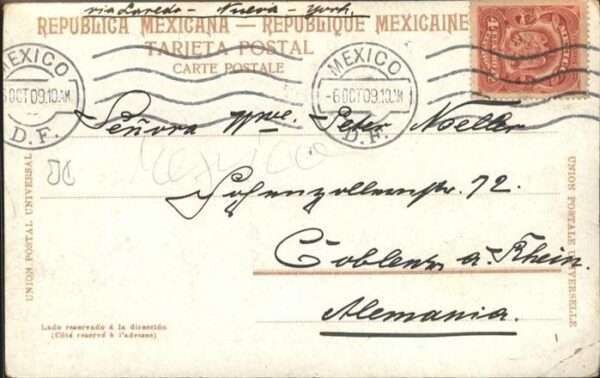 via Laredo - Nueva - York.
REPUBLICA MEXICANA — REPUBLIQUE MEXICAINE
TARJETA POSTAL
CARTE POSTALE
MEXICO
6 OCT 09. 10. AM
D. F.
MEXICO
-6 OCT 09. 10. AM
D. F.
Señora Wwe. Peter Noeller
Mexico
Hohenzollernstr. 72.
Coblenz a. Rhein.
Alemania.
UNION POSTAL UNIVERSAL
UNION POSTALE UNIVERSELLE
Lado reservado á la dirección
(Côté reservé à l'adresse)